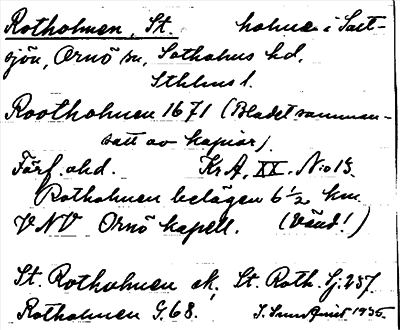 Rotholmen, St. holme i Salt-
sjön, Ornö sn, Sotholms hd,
Sthlms l.
Rootholmen 1671 (Bladet samman-
satt av kopior)
Förf. okd. Kr A, XX. No 13.
Rotholmen belägen 6 1/2 km
VNV Ornö kapell. (Vänd!)
St. Rotholmen ek. St. Roth. Sj. 257.
Rotholmen G. 68. 1935.